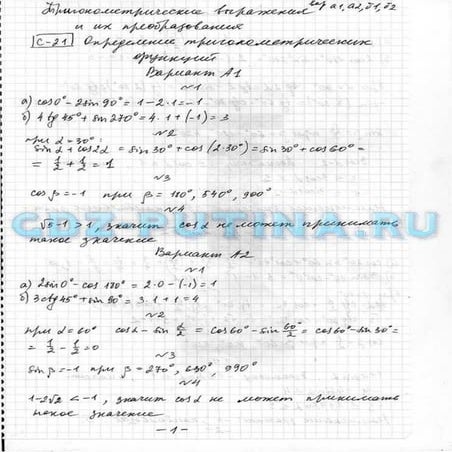 Тригонометрические выражения вар А1, А2, Б1, Б2
и их преобразования
С-21 Определение тригонометрических
функций
Вариант А1
№1
а) cos0° - 2sin90° = 1 - 2·1 = -1
б) 4tg45° + sin270° = 4·1 + (-1) = 3
№2
при α = 30° :
sinα + cos2α = sin30° + cos(2·30°) = sin30° + cos60° =
= 1/2 + 1/2 = 1
№3
cosβ = -1 при β = 180°, 540°, 900°
№4
√5-1 > 1, значит cosα не может принимать
такое значение
GDZ-PUTINA.RU
Вариант А2
№1
а) 2sin0° - cos180° = 2·0 - (-1) = 1
б) 3ctg45° + sin90° = 3·1 + 1 = 4
№2
при α = 60° cosα - sin α/2 = cos60° - sin 60°/2 = cos60° - sin30° =
= 1/2 - 1/2 = 0
№3
sinβ = -1 при β = 270°, 630°, 990°
№4
1-2√2 < -1, значит cosα не может принимать
такое значение
-1-